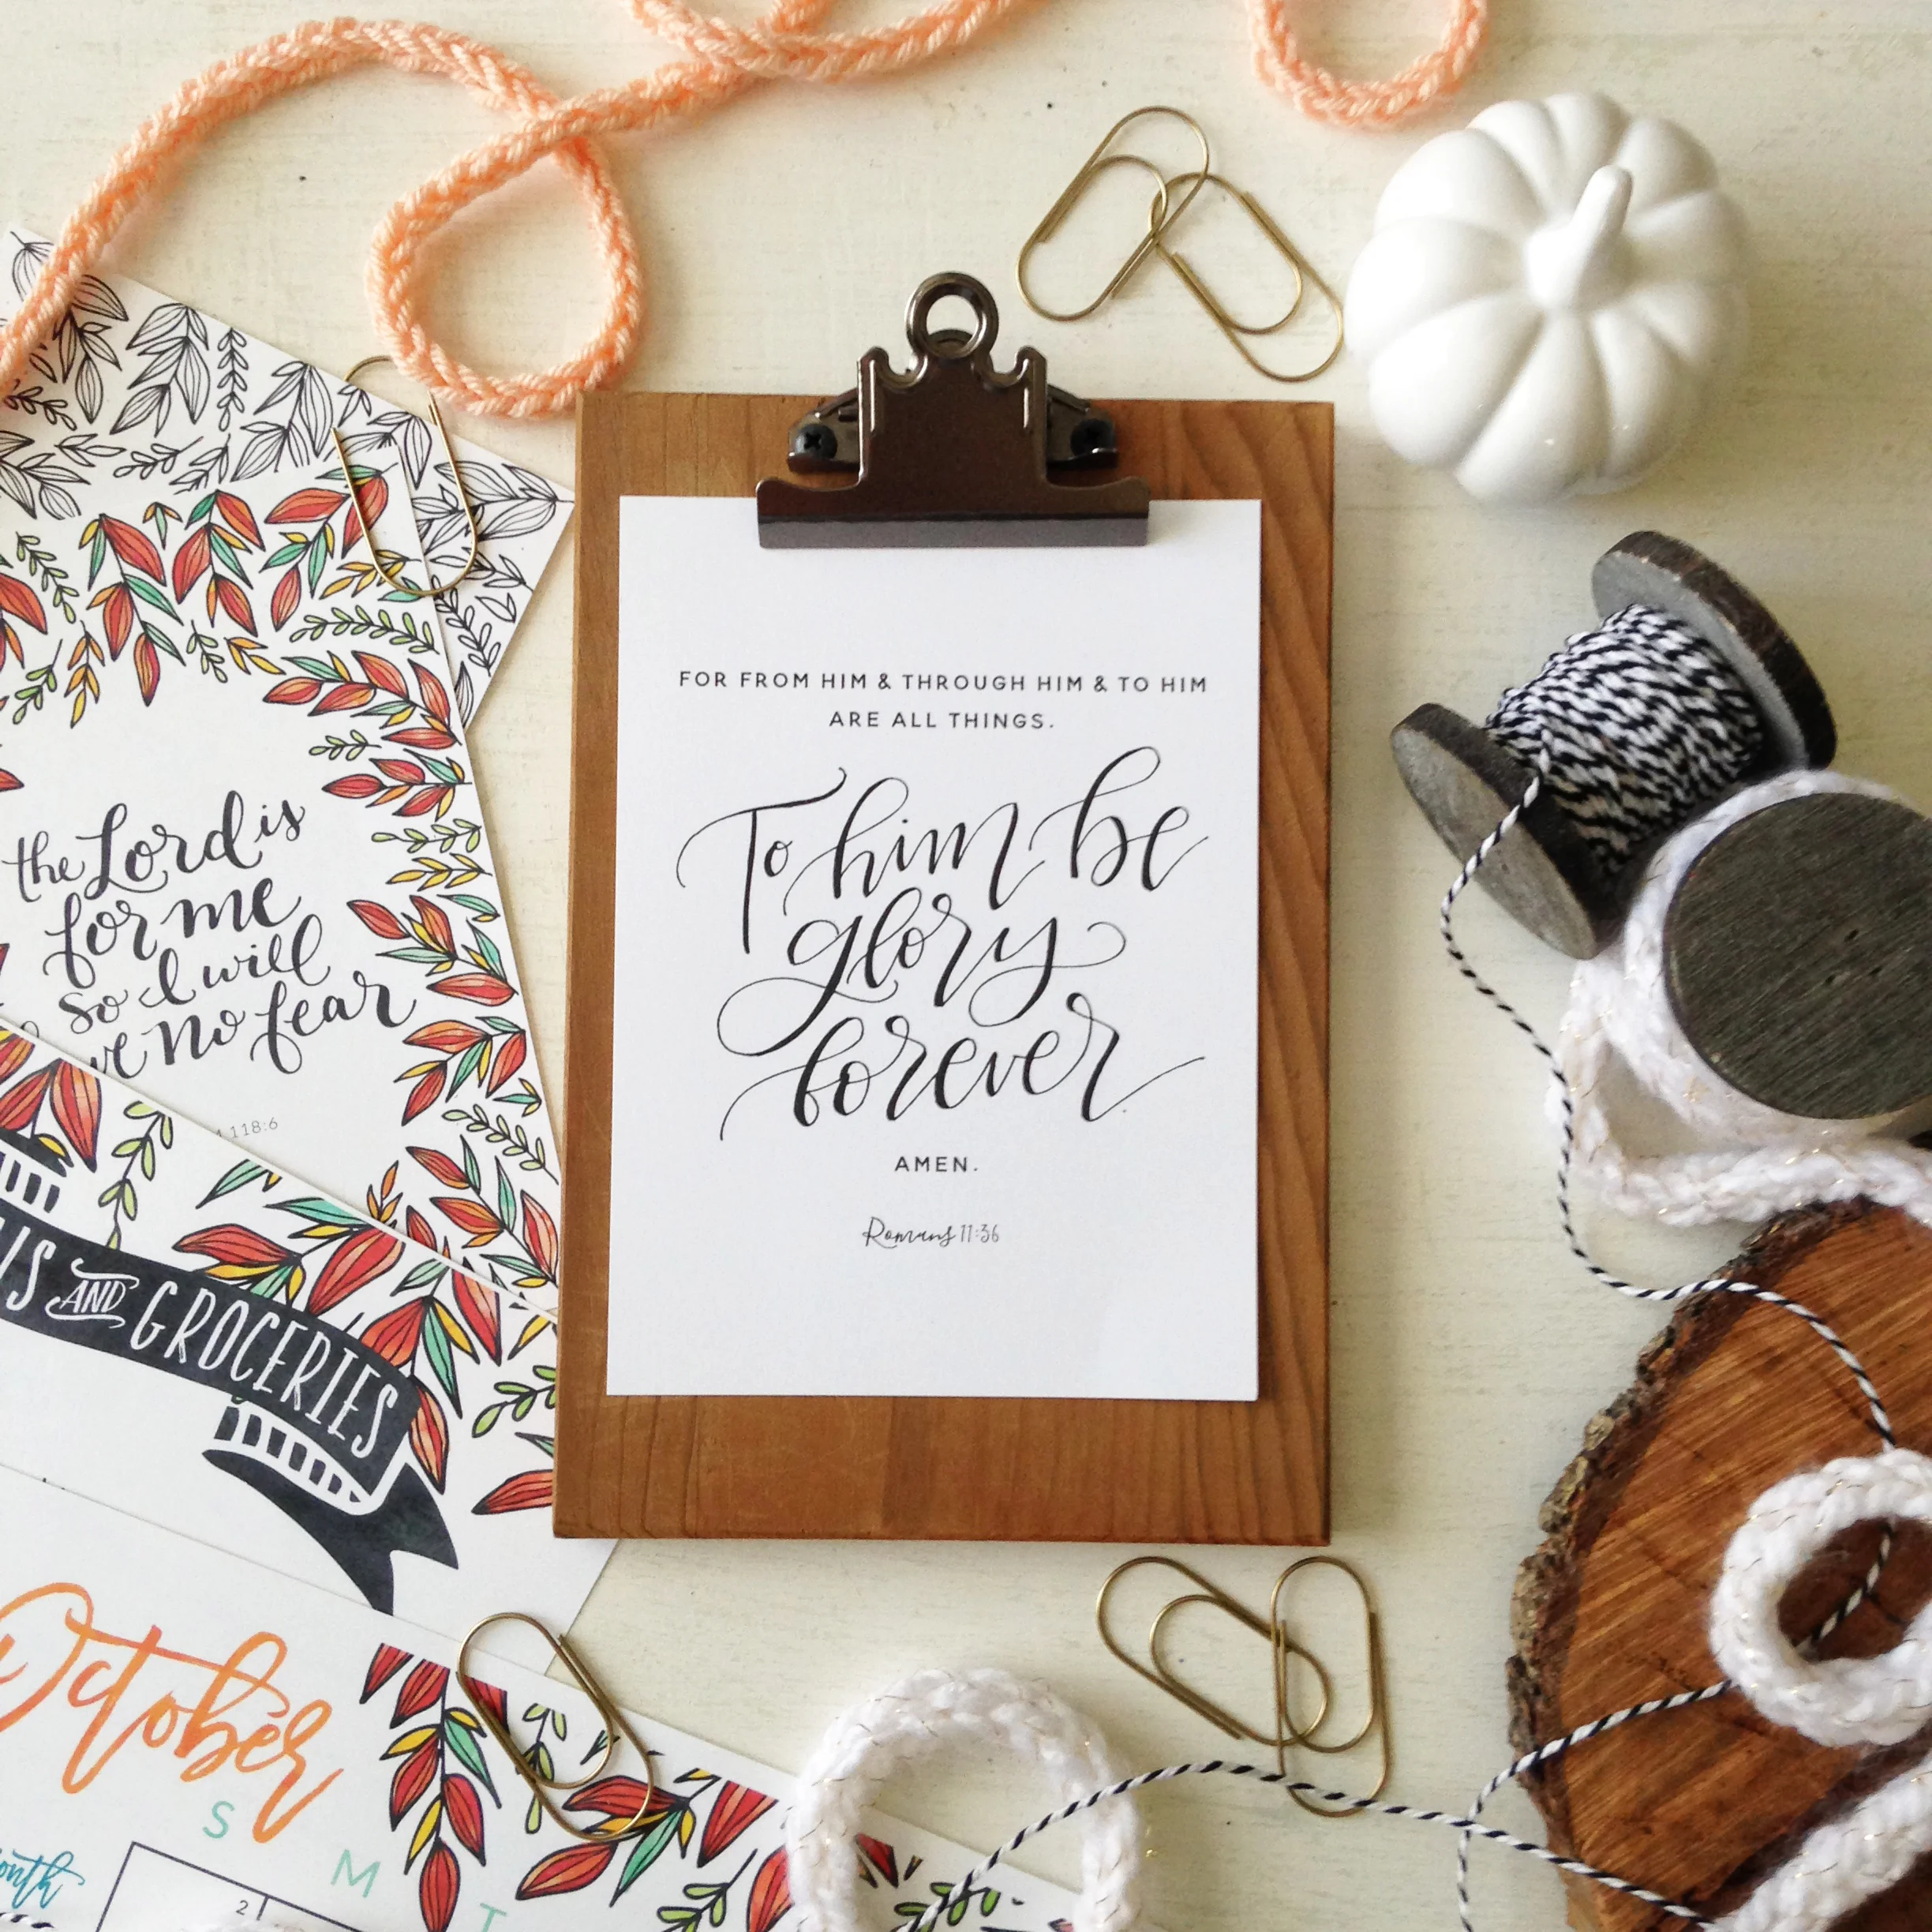 FOR FROM HIM & THROUGH HIM & TO HIM
ARE ALL THINGS.
To him be
glory
forever
AMEN.
Romans 11:36
the Lord is
for me
so I will
no fear
118:6
AND GROCERIES
October
S
M
T
2